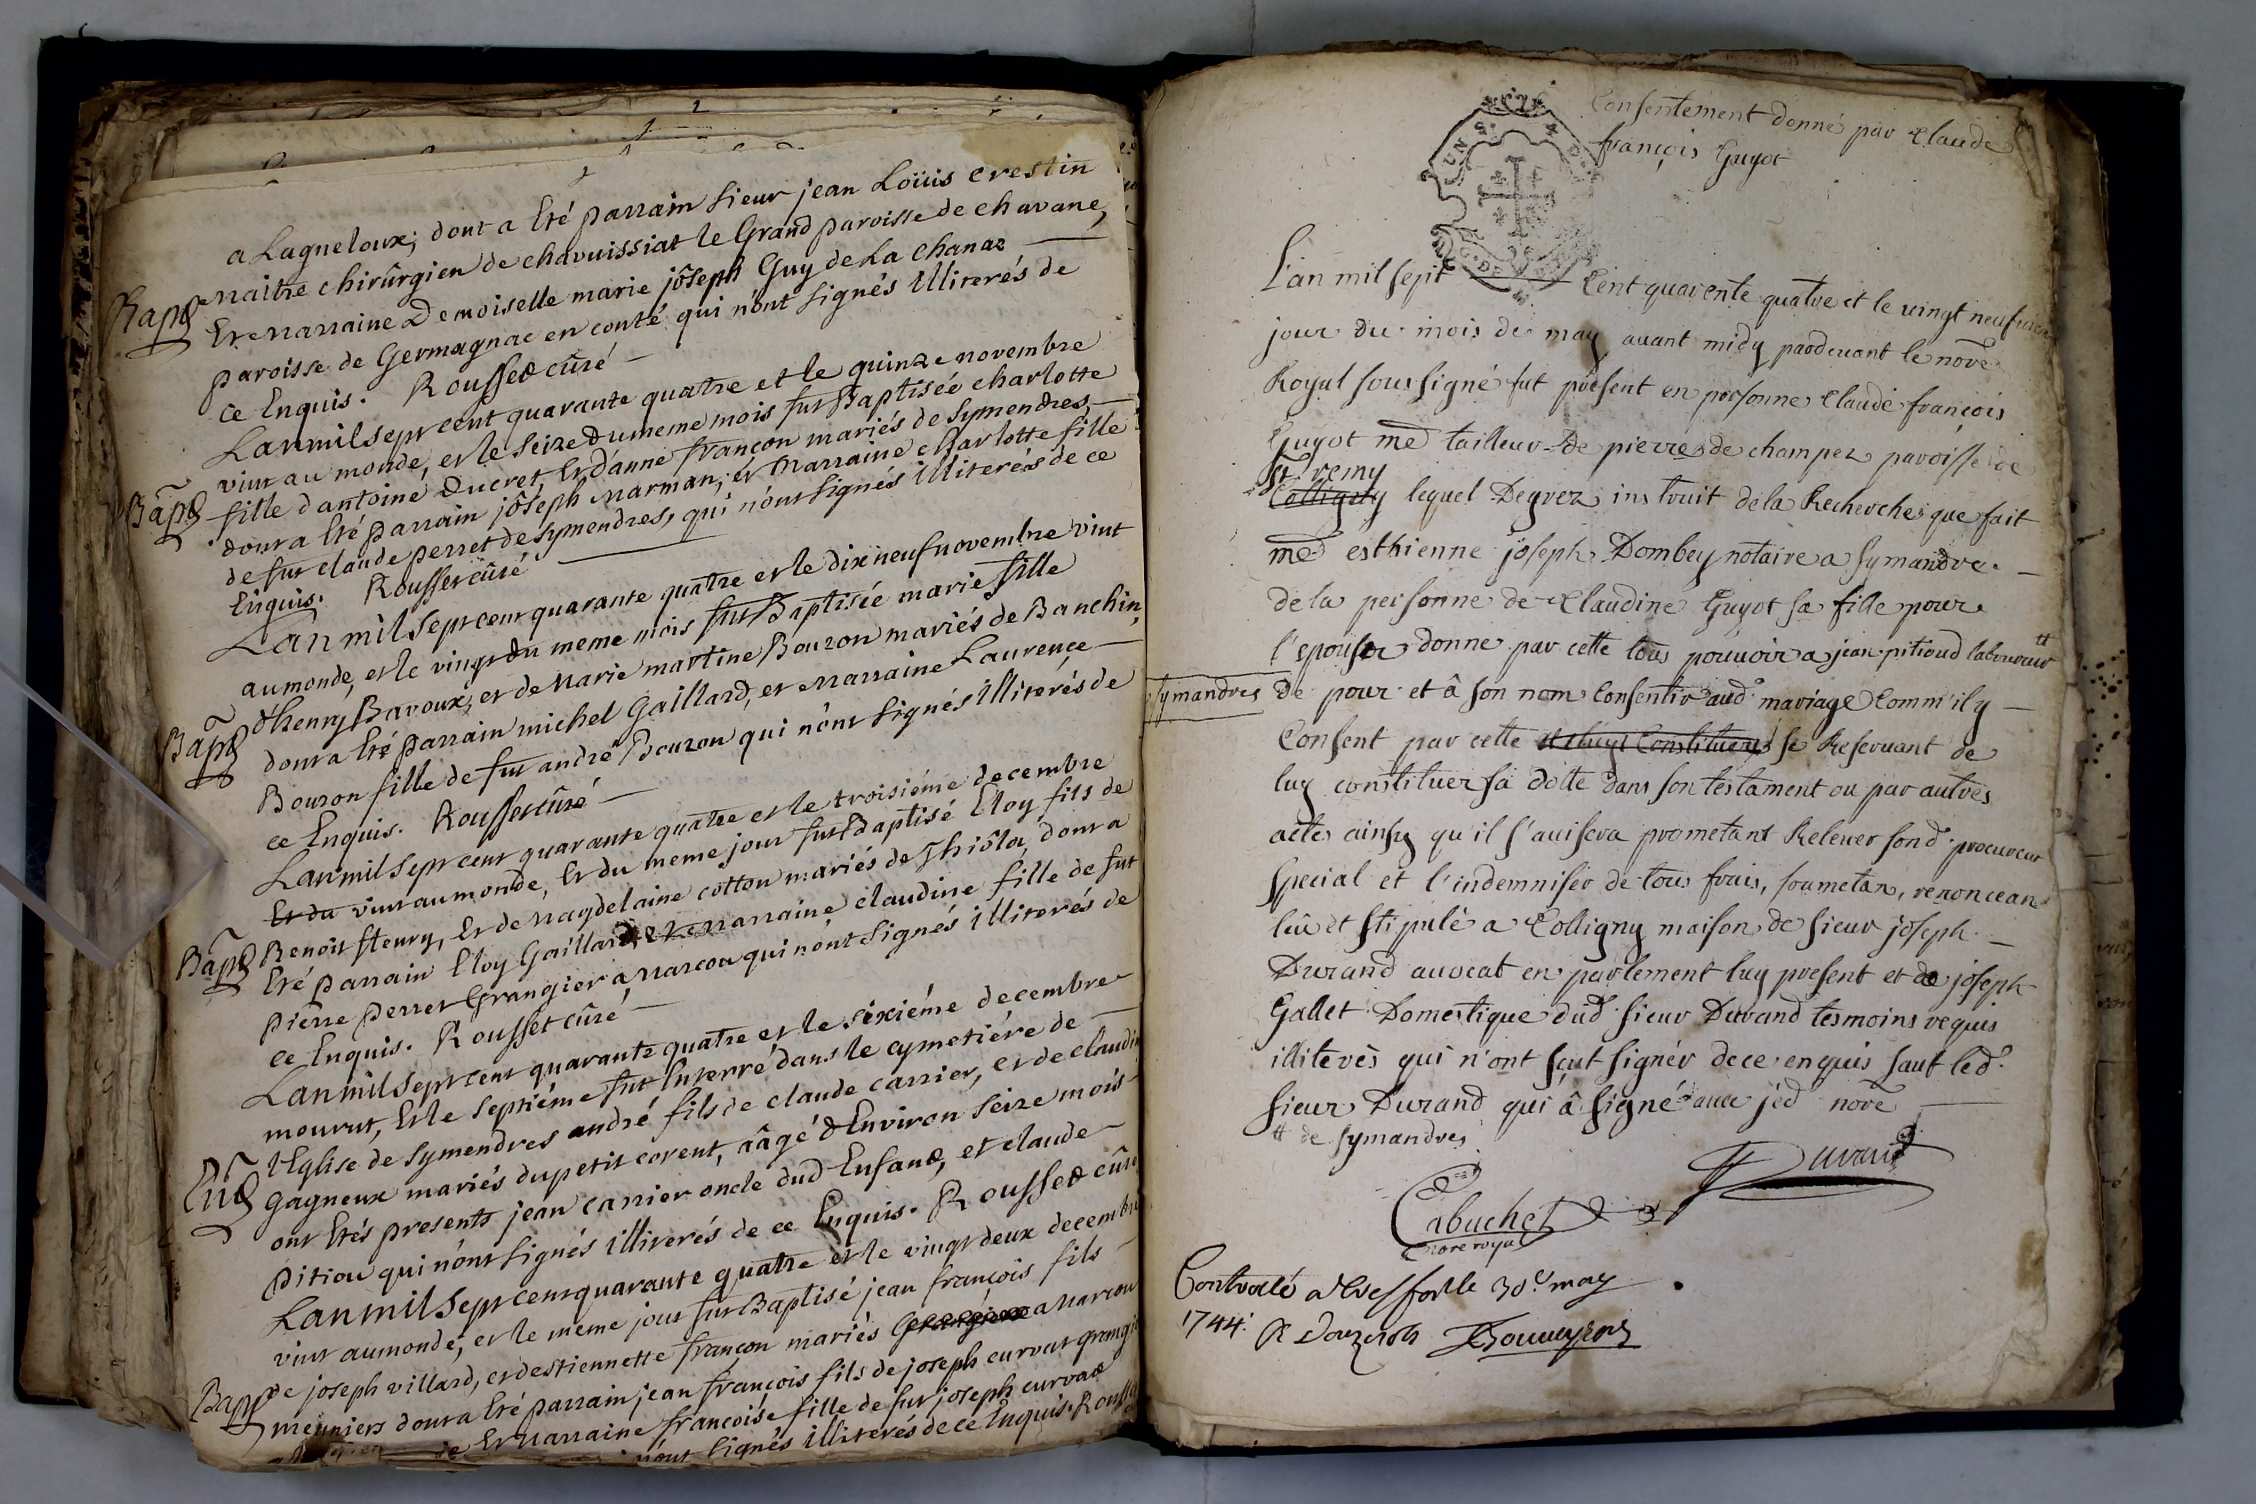 a Lagneloux; dont a Eté parrain sieur jean Loüis crestin
maitre chirûrgien de chavuissiat le Grand paroisse de chavane,
Et marraine Demoiselle marie jôseph Guy de La chanaz
paroisse de Germagnac en conté qui n'ont signés illiterés de
ce Enquis. Rousset cûré
Bapt
Lan mil sept cent quarante quatre et le quinze novembre
vint au monde, et le seize du meme mois fut Baptisée charlotte
fille d'antoine Ducret, Et d'anne françon mariés de Symendres,
dont a Eté parrain jôseph marman, et marraine charlotte fille
de fut claude perret de Symendres, qui n'ont signés illiterés de ce
Enquis. Rousset cûré
Bapt
Lan mil sept cent quarante quatre et le dix neuf novembre vint
au monde, et le vingt du meme mois fut Baptisée marie fille
d'henry Bavoux, et de Marie martine Bouzon mariés de Banchin,
dont a Eté parrain michel Gaillard, et marraine Laurençe
Bouzon fille de fut andré Bouzon qui n'ont signés illiterés de
ce Enquis. Rousset cûré
Bapt
Lan mil sept cent quarante quatre et le troisiéme decembre
Et du vint au monde, Et du meme jour fut Baptisé Eloy fils de
Benoit fleury, Et de Magdelaine cotton mariés de Thiôla, dont a
Eté parrain Eloy Gaillard, et marraine claudine fille de fut
pierre perret Grangier a Marcou qui n'ont signés illiterés de
ce Enquis. Rousset cûré
Bapt
Lan mil sept cent quarante quatre et le sixiéme decembre
mourut, Et le septiéme fut Enterré dans le cymetiére de
l'Eglise de Symendres andré fils de claude carrier, et de claudine
gagneux mariés du petit corent, aâgé d'Environ seize mois
ont Etés presents jean carrier oncle dud Enfant, et claude
pitiou qui n'ont signés illiterés de ce Enquis. Rousset cûré
Lan mil sept cent quarante quatre et le vingt deux decembre
vint au monde, et le meme jour fut Baptisé jean françois fils
Bapt
de joseph villard, et d'estiennette françon mariés Grangiers a Marcou
meuniers dont a Eté parrain jean françois fils de joseph curvat grangier
Et marraine françoise fille de fut joseph curvat
n'ont signés illiterés de ce Enquis. Rousset
Consentement donné par Claude
françois Guyot
L'an mil sept Cent quarente quatre et le vingt neufvieme
jour du mois de may avant midy pardevant le nore
Royal soussigné fut present en personne Claude françois
Guyot me tailleur de pierre de champez paroisse de
st remy
Colligny lequel Deyrez instruit de la Recherche que fait
me esthienne joseph Dombey notaire a Symandre
de la personne de Claudine Guyot sa fille pour
l'epouser donne par cette tous pouvoir a jean pitioud laboureur #
symandres
De pour et â son nom Consentir aud mariage Comm'il y
Consent par cette et luy Constituer se Reservant de
luy constituer sa dotte dans son testament ou par autres
actes ainsy qu'il s'avisera prometant Relever sond procureur
special et l'indemniser de tous frais, soumetan, renoncean
leû et stipulé a Colligny maison de sieur joseph
Durand avocat en parlement luy present et de joseph
Gallet Domestique dud sieur Durand tesmoins requis
illiterés qui n'ont sçut signér de ce enquis sauf led
sieur Durand qui â signé avec jed nore
# de symandres
Durand
Cabuchet
nore royal
Controllé a Treffort le 30e may
1744. R Douze sols